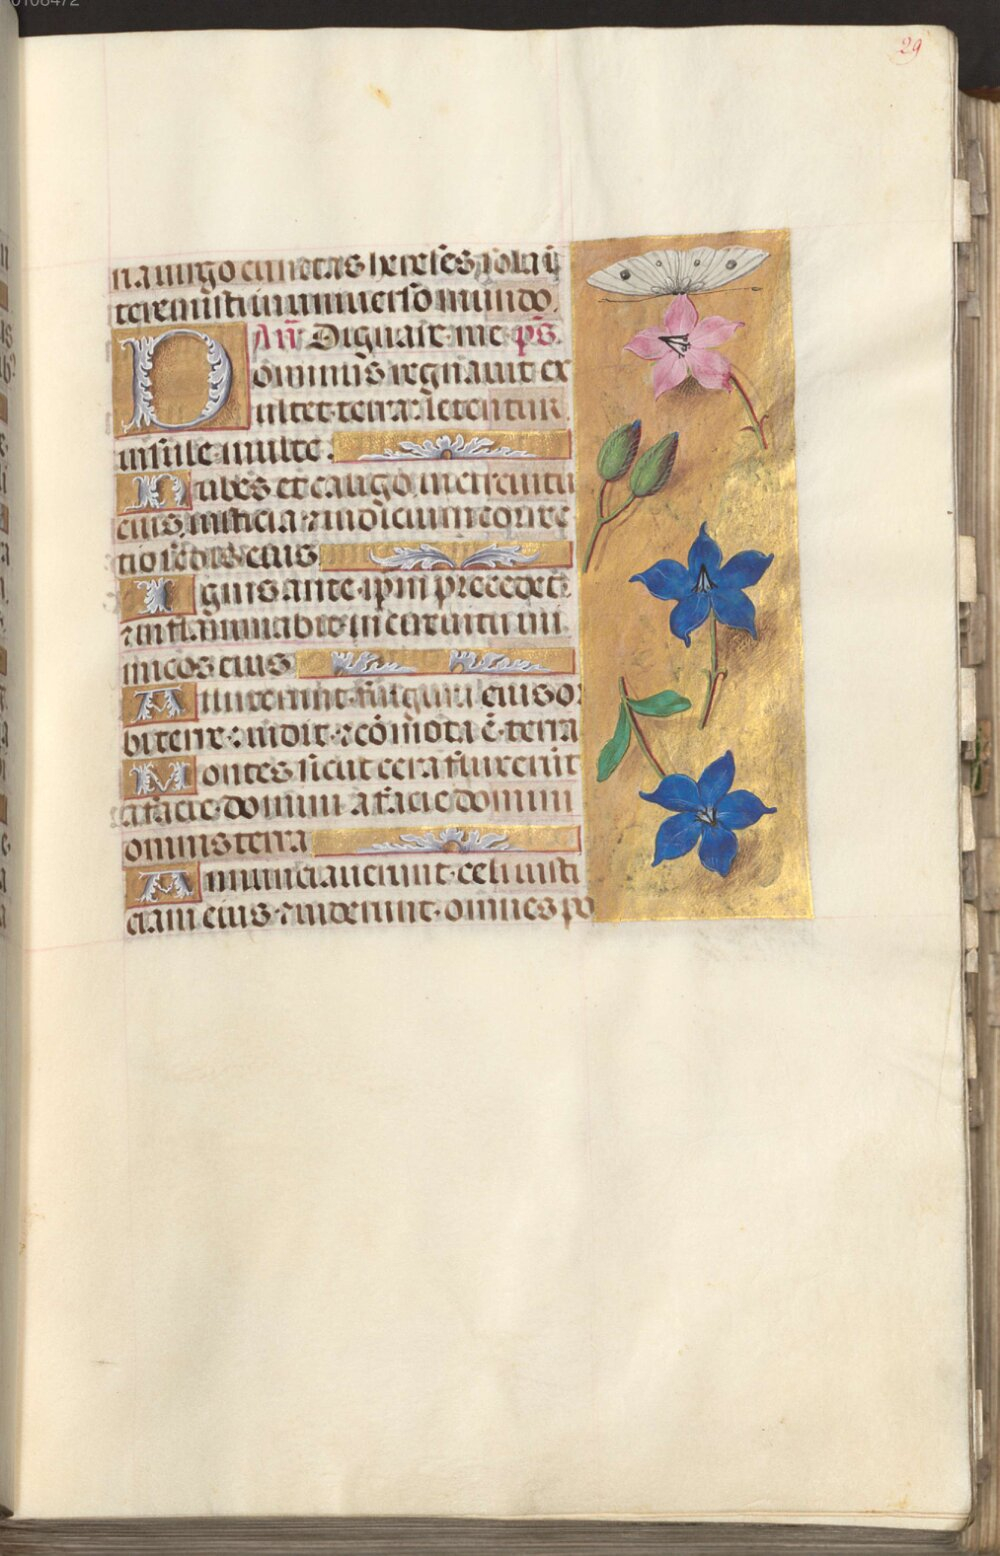 29
na virgo cunctas hereses sola ī
teremisti in universo mundo.
Añ Dignare me. pṡ.
Dominus regnavit ex
ultet terra: letentur
insule multe.
Nubes et caligo in circuitu
eius. iusticia ⁊ iudicium correc
tio sedis eius
Ignis ante ipm precedet
⁊ inflammabit in circuitu ini
micos eius
Alluxerunt fulgura eius or
bi terre: vidit ⁊ cōmota ē terra
Montes sicut cera fluxerūt
a facie domini a facie domini
omnis terra
Annunciaverunt celi iusti
ciam eius ⁊ viderunt omnes po